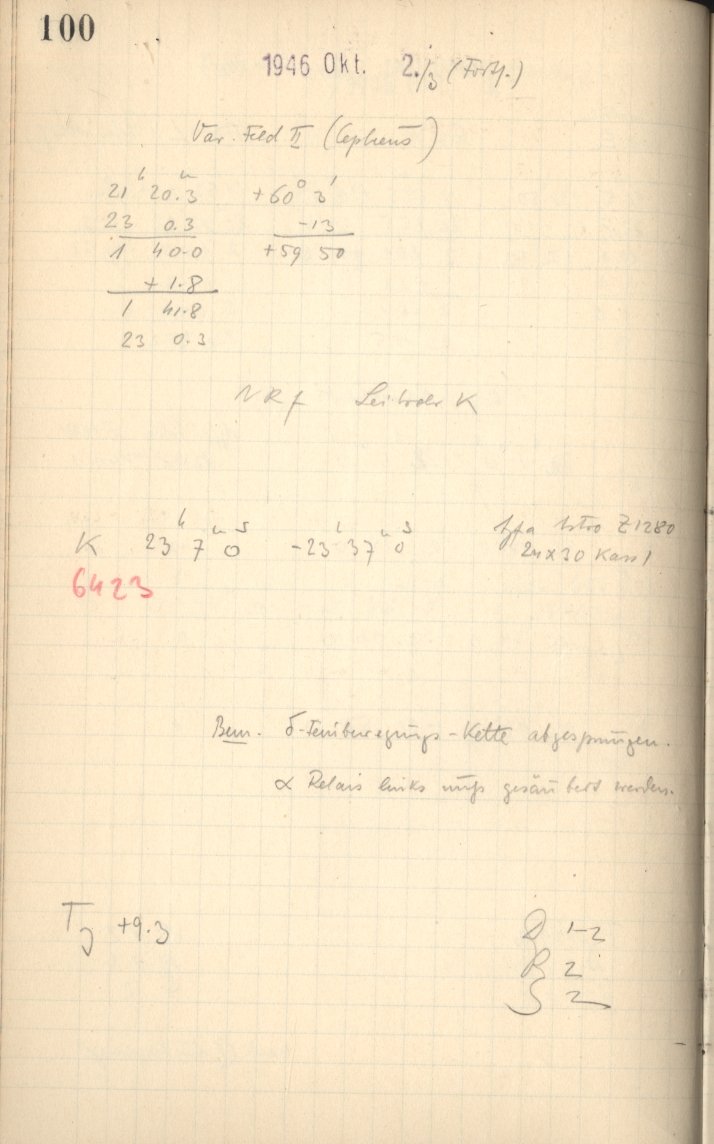 100
1946 Okt. 2./3 (Forts.)
Var. Feld II (Cepheus)
21 h 20.3 m +60° 3'
23 0.3 -13
1 40.0 +59 50
+ 1.8
1 41.8
23 0.3
K
K 23 h 7 m 0 s -23 h 37 m 0 s Agfa Astro Z1280
24x30 Kass 1
6423
Bem. δ-Feinbewegungs-Kette abgesprungen.
α Relais links muß gesäubert werden.
T +9.3
D 1-2
R 2
S 2